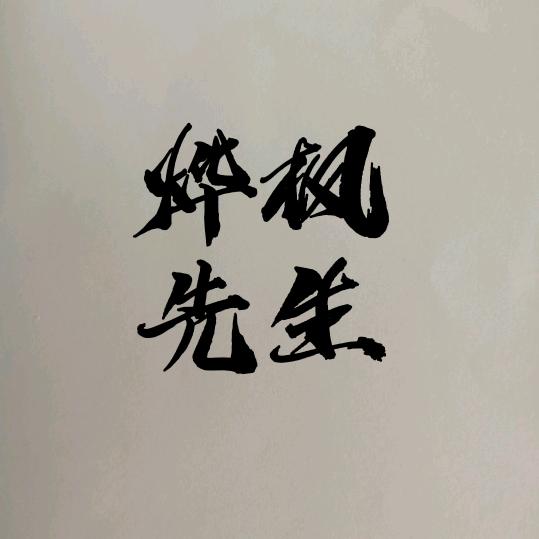 烨枫
先生